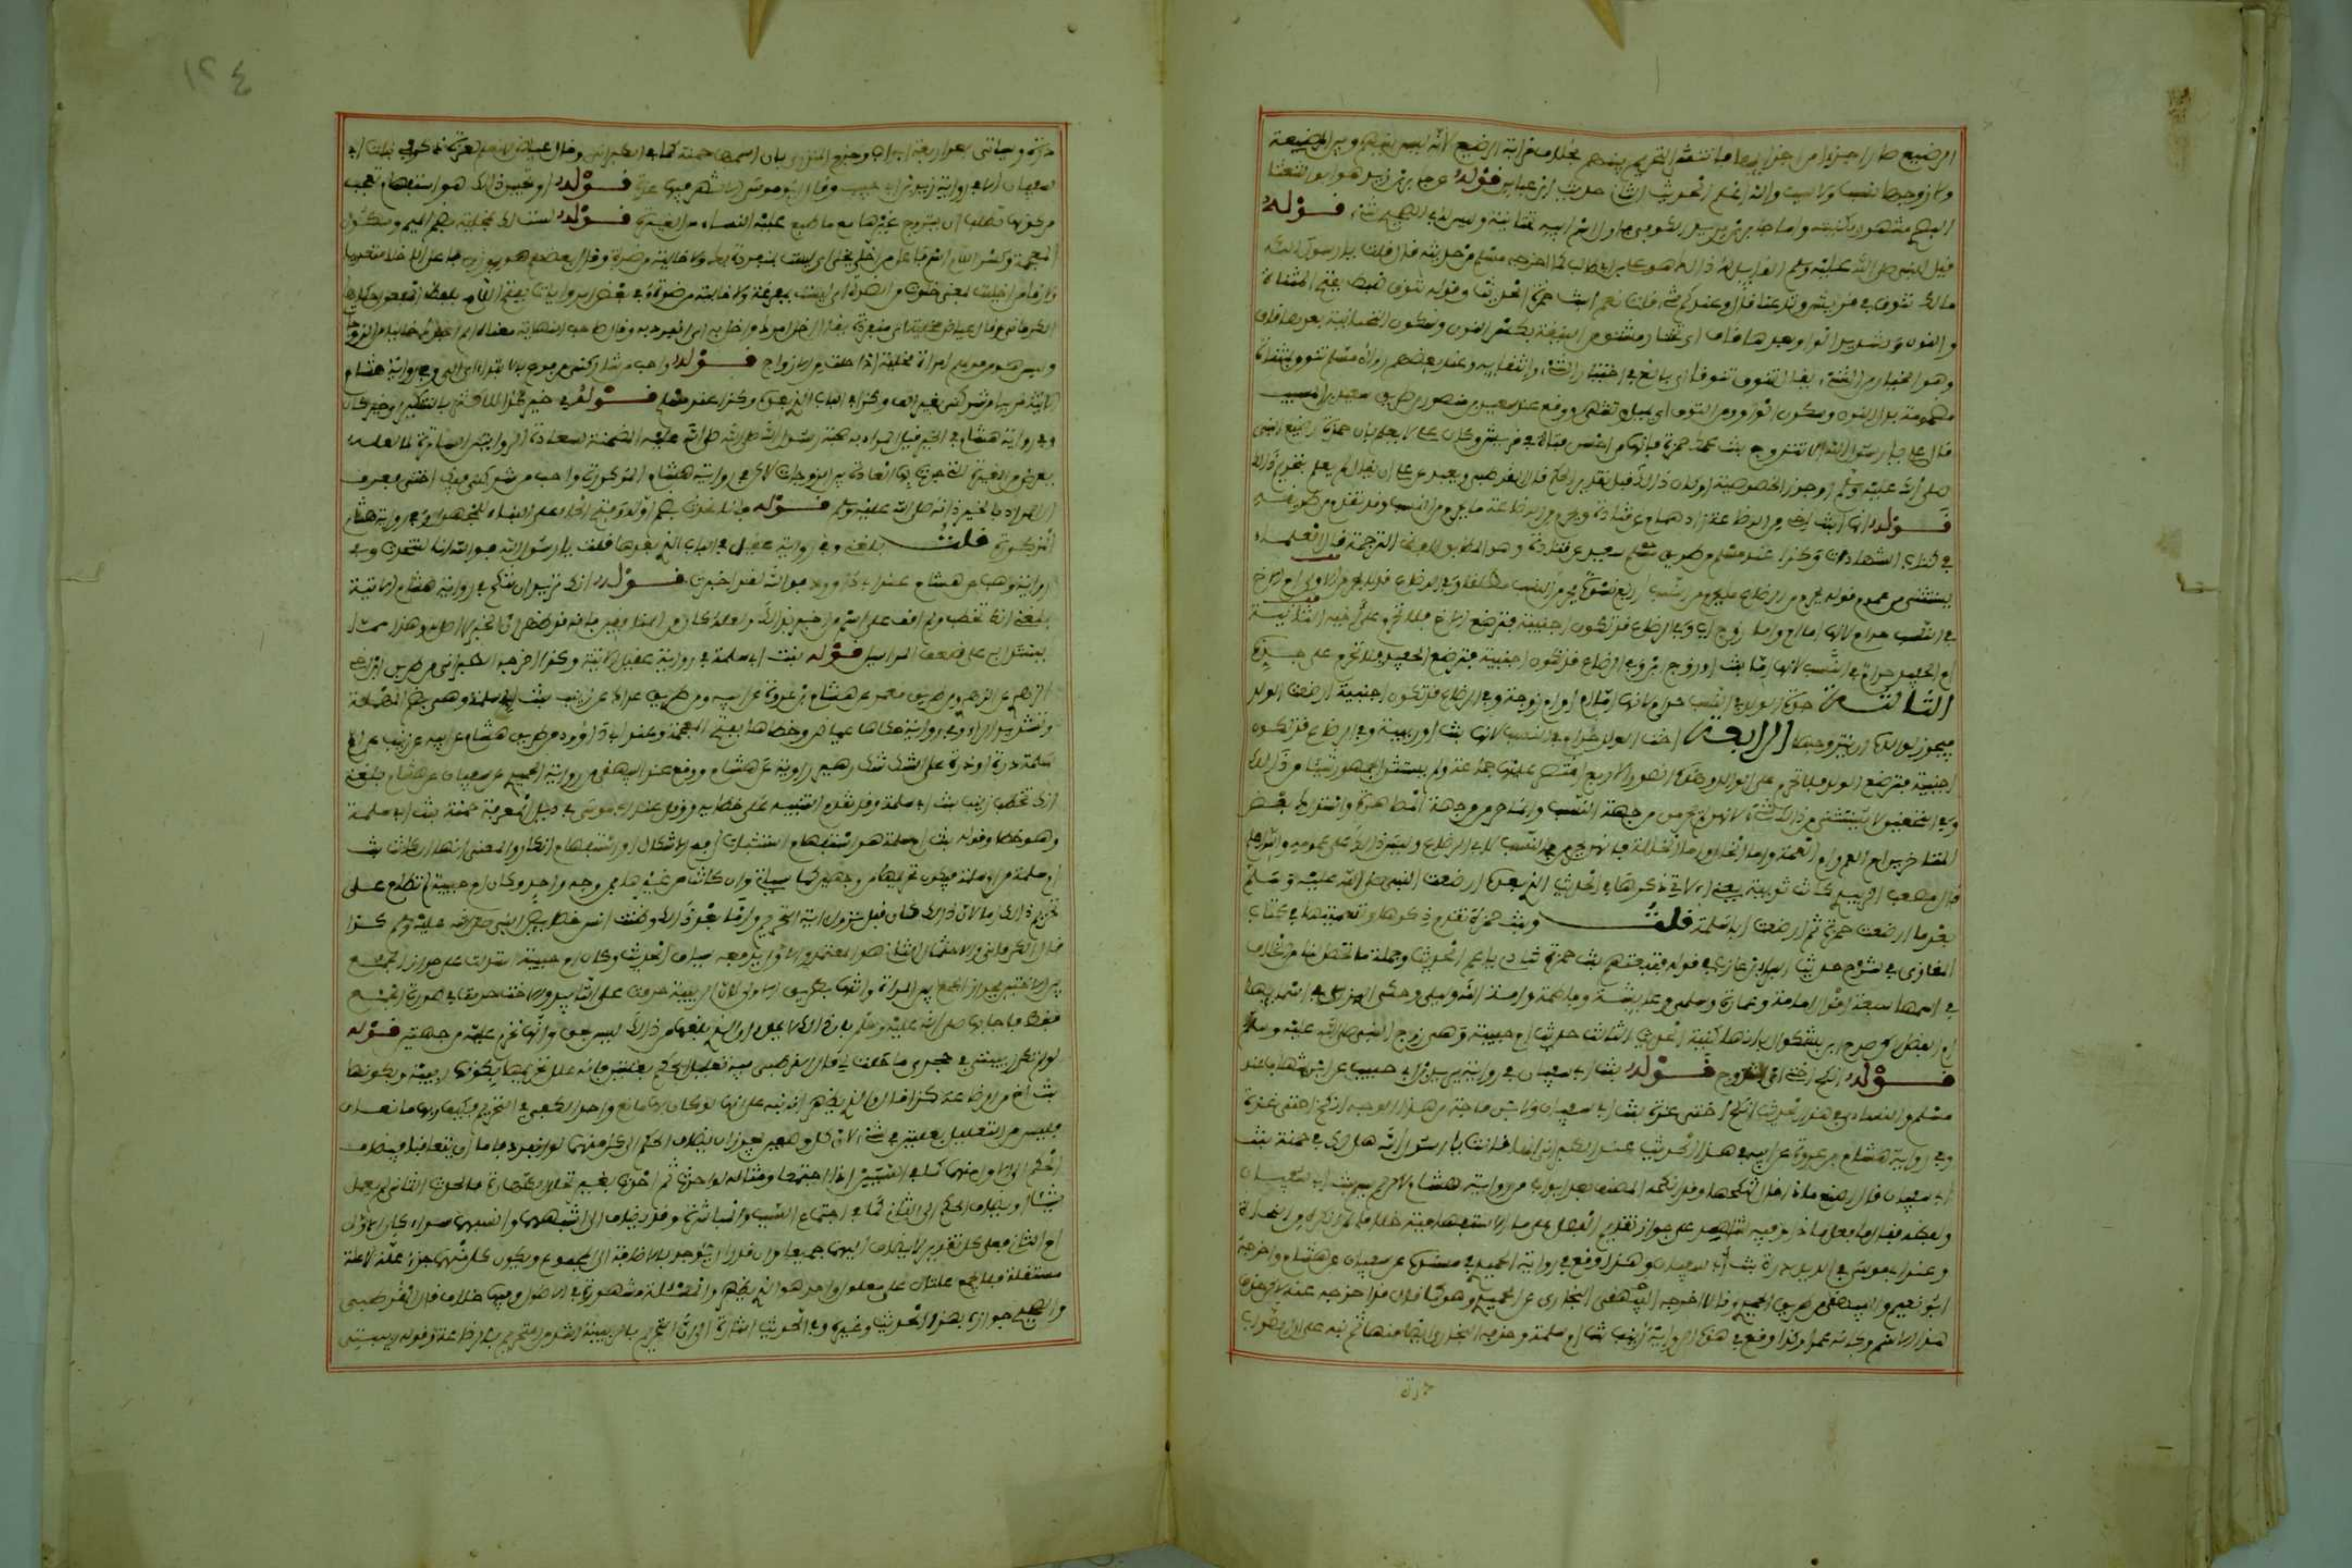 الرضيع صار جزءا من اجزائهما فانتشر التحريم بينهم بخلاف قرابة الرضيع لانه ليس بينهم وبين المرضعة
ولا زوجها نسب ولا سبب والله اعلم الحديث الثاني حديث ابن عباس قوله عن جابر بن زيد هو ابو الشعثاء
البصري مشهور بكنيته واما جابر بن يزيد الكوفي فاول اسم ابيه تحتانية وليس له في الصحيح شيء قوله
قيل للنبي صلى الله عليه وسلم القايل له ذلك هو علي بن ابي طالب كما اخرجه مسلم من حديثه قال قلت يا رسول الله
مالك تنوق في قريش وتدعنا قال وعندكم شيء قلت نعم ابنت حمزة الحديث وقوله تنوق ضبط بفتح المثناة
والنون وتشديد الواو بعدها قاف اي تختار مشتق من النيقة بكسر النون وسكون التحتانية بعدها قاف
وهو الخيار من الشيء يقال تنوق تنوقا اي بالغ في اختيار الشيء وانتقايه وعند بعضهم رواة مسلم تتوق بمثناة
مضمومة بدل النون وسكون الواو من التوق اي تميل وتشتهي ووقع عند سعيد بن منصور من طريق سعيد بن المسيب
قال علي يا رسول الله الا تتزوج بنت عمك حمزة فانها من احسن فتاة في قريش وكان علي لا يعلم بان حمزة رضيع النبي
صلى الله عليه وسلم او جوز الخصوصية او كان ذلك قبل تقرير الحكم قال القرطبي وبعيد عن علي ان يقال لم يعلم بتحريم ذلك
قوله انها ابنت اخي من الرضاعة زاد همام عن قتادة ويحرم من الرضاعة ما يحرم من النسب وقد تقدم من طريقه
في كتاب الشهادات وكذا عند مسلم من طريق سعيد عن قتادة وهو المطابق للفظ الترجمة قال العلماء
يستثنى من عموم قوله يحرم من الرضاع ما يحرم من النسب اربع نسوة يحرمن في النسب مطلقا وفي الرضاع قد لا يحرمن الاولى ام الاخ
في النسب حرام لانها اما ام واما زوج اب وفي الرضاع قد تكون اجنبية فترضع الاخ فلا تحرم على اخيه الثانية
ام الحفيد حرام في النسب لانها اما بنت او زوج ابن وفي الرضاع قد تكون اجنبية فترضع الحفيد فلا تحرم على جده
الثالثة جدة الولد في النسب حرام لانها اما ام او ام زوجة وفي الرضاع قد تكون اجنبية ارضعت الولد
فيجوز لوالده ان يتزوجها الرابعة اخت الولد حرام في النسب لانها بنت او ربيبة وفي الرضاع قد تكون
اجنبية فترضع الولد فلا تحرم على الوالد وهذه الصور الاربع اقتصر عليها جماعة ولم يستثن الجمهور شيئا من ذلك
وفي التحقيق لا يستثنى من ذلك شيء لانهن لم يحرمن من جهة النسب وانما حرمن من جهة المصاهرة واستدرك بعض
المتاخرين ام العم وام العمة وام الخال وام الخالة فانهن يحرمن في النسب لا في الرضاع وليس ذلك على عمومه والله اعلم
قال مصعب الزبيري كانت ثويبة يعني الاتي ذكرها في الحديث الذي بعده ارضعت النبي صلى الله عليه وسلم
بعد ما ارضعت حمزة ثم ارضعت ابا سلمة قلت وبنت حمزة تقدم ذكرها وتسميتها في كتاب
المغازي في شرح حديث البراء بن عازب في قوله فتبعتهم بنت حمزة تنادي يا عم الحديث وجملة ما تحصل لنا من الخلاف
في اسمها سبعة اقوال امامة وعمارة وسلمى وعايشة وفاطمة وامة الله ويعلى وحكى المزي في اسمايها
ام الفضل لكن صرح ابن بشكوال بانها كنية الحديث الثالث حديث ام حبيبة وهي زوج النبي صلى الله عليه وسلم
قوله انكح اختي اي تزوج قوله بنت ابي سفيان في رواية يزيد بن ابي حبيب عن ابن شهاب عند
مسلم والنسائي في هذا الحديث انكح اختي عزة بنت ابي سفيان ولابن ماجة من هذا الوجه انكح اختي عزة
وفي رواية هشام بن عروة عن ابيه في هذا الحديث عند الطبراني انها قالت يا رسول الله هل لك في حمنة بنت
ابي سفيان قال اصنع ماذا قالت تنكحها وقد اخرجه المصنف بعد ابواب من رواية هشام لكن لم يسم بنت ابي سفيان
ولفظه فقال فافعل ماذا وفيه شاهد على جواز تقديم الفعل على ما الاستفهامية خلافا لمن انكره من النحاة
وعند ابي موسى في الذيل درة بنت ابي سفيان وهذا وقع في رواية الحميدي في مسنده عن سفيان عن هشام واخرجه
ابو نعيم والبيهقي من طريق الحميدي وقالا اخرجه البخاري عن الحميدي وهو كما قالا قد اخرجه عنه لكن حذف
هذا الاسم وكانه عمدا وكذا وقع في هذه الرواية زينب بنت ام سلمة وحذفه البخاري ايضا منها ثم نبه على ان الصواب
درة
١٢٤
درة وسياتي بعد اربعة ابواب وجزم المنذري بان اسمها حمنة كما في الطبراني وقال عياض لا نعلم لعزة ذكرا في بنات ابي
سفيان الا في رواية يزيد بن ابي حبيب وقال ابو موسى الاشهر فيها عزة قوله او تحبين ذلك هو استفهام تعجب
من كونها تطلب ان يتزوج غيرها مع ما طبع عليه النساء من الغيرة قوله لست لك بمخلية بضم الميم وسكون
المعجمة وكسر اللام اسم فاعل من اخلى يخلي اي لست بمنفردة بك ولا خالية من ضرة وقال بعضهم هو بوزن فاعل الاخلاء متعديا
ولازما من اخليت بمعنى خلوت من الضرة اي لست بمتفرغة ولا خالية من ضرة وفي بعض الروايات بفتح اللام بلفظ المفعول حكاها
الكرماني وقال عياض مخلية اي منفردة يقال اخل امرك واخل به اي انفرد به وقال صاحب النهاية معناه لم اجدك خاليا من الزوجات
وليس هو من قولهم امراة مخلية اذا خلت من الازواج قوله واحب من شاركني مرفوع بالابتداء اي الي وفي رواية هشام
الاتية قريبا من شركني بغير الف وكذا في الباب الذي بعده وكذا عند مسلم قوله في خير كذا للاكثر بالتنكير اي خير كان
وفي رواية هشام في الخير قيل المراد به صحبة رسول الله صلى الله عليه وسلم المتضمنة لسعادة الدارين الساترة لما لعله
يعرض من الغيرة التي جرت بها العادة بين الزوجات لكن في رواية هشام المذكورة واحب من شركني فيك اختي فعرف
ان المراد بالخير ذاته صلى الله عليه وسلم قوله فانا نحدث بضم اوله وفتح الحاء على البناء للمجهول وفي رواية هشام
المذكورة قلت بلغني وفي رواية عقيل في الباب الذي بعدها قلت يا رسول الله فوالله انا لنتحدث وفي
رواية وهب عن هشام عند ابي داوود فوالله لقد اخبرت قوله انك تريد ان تنكح في رواية هشام الاتية
بلغني انك تخطب ولم اقف على اسم من اخبر بذلك ولعله كان من المنافقين فانه قد ظهر ان الخبر لا اصل له وهذا مما
يستدل به على ضعف المراسيل قوله بنت ابي سلمة في رواية عقيل الاتية وكذا اخرجه الطبراني من طريق ابن اخي
الزهري عن الزهري ومن طريق معمر عن هشام بن عروة عن ابيه ومن طريق عراك عن زينب بنت ابي سلمة وهي بضم المهملة
وتشديد الراء وفي رواية حكاها عياض وخطاها بفتح المعجمة وعند ابي داوود من طريق هشام عن ابيه عن زينب عن ام
سلمة درة او ذرة على الشك شك زهير راويه عن هشام ووقع عند البيهقي من رواية الحميدي عن سفيان عن هشام بلغني
انك تخطب زينب بنت ابي سلمة وقد تقدم التنبيه على خطايه ووقع عند ابي موسى في ذيل المعرفة حمنة بنت ابي سلمة
وهو خطا وقوله بنت ام سلمة هو استفهام استثبات لرفع الاشكال او استفهام انكار والمعنى انها ان كانت بنت
ام سلمة من ابي سلمة فيكون تحريمها من وجهين كما سياتي وان كانت من غيره فمن وجه واحد وكان ام حبيبة لم تطلع على
تحريم ذلك اما لان ذلك كان قبل نزول اية التحريم واما بعد ذلك وظنت انه من خصايص النبي صلى الله عليه وسلم كذا
قال الكرماني والاحتمال الثاني هو المعتمد والاول يدفعه سياق الحديث وكان ام حبيبة استدلت على جواز الجمع
بين الاختين بجواز الجمع بين المراة وابنتها بطريق الاولى لان الربيبة حرمت على التابيد والاخت حرمت في صورة الجمع
فقط فاجابها صلى الله عليه وسلم بان ذلك لا يحل وان الذي بلغها من ذلك ليس بحق وانها تحرم عليه من جهتين قوله
لو انها لم تكن ربيبتي في حجري ما حلت لي قال القرطبي فيه تعليل الحكم بعلتين فانه علل تحريمها بكونها ربيبة وبكونها
بنت اخ من الرضاعة كذا قال والذي يظهر انه نبه على انها لو كان بها مانع واحد لكفى في التحريم فكيف وبها مانعان
فليس من التعليل بعلتين في شيء لان كل وصفين يجوز ان يضاف الحكم الى كل منهما لو انفرد فاما ان يتعاقبا فيضاف
الحكم الى الاول منهما كما في السببين اذا اجتمعا ومثاله لو احدث ثم احدث بغير تخلل طهارة فالحدث الثاني لم يعمل
شيئا او يضاف الحكم الى الثاني كما في اجتماع السبب والمباشرة وقد يضاف الى اشبههما وانسبهما سواء كان الاول
ام الثاني فعلى كل تقدير لا يضاف اليهما جميعا وان قدر انه يوجد فالاضافة الى المجموع ويكون كل منهما جزء علة لا علة
مستقلة فلا تجتمع علتان على معلول واحد هو الذي يظهر والمسالة مشهورة في الاصول وفيها خلاف قال القرطبي
والصحيح جوازه بهذا الحديث وغيره وفي الحديث اشارة الى ان التحريم بالربيبة اشد من التحريم بالرضاعة وقوله ربيبتي